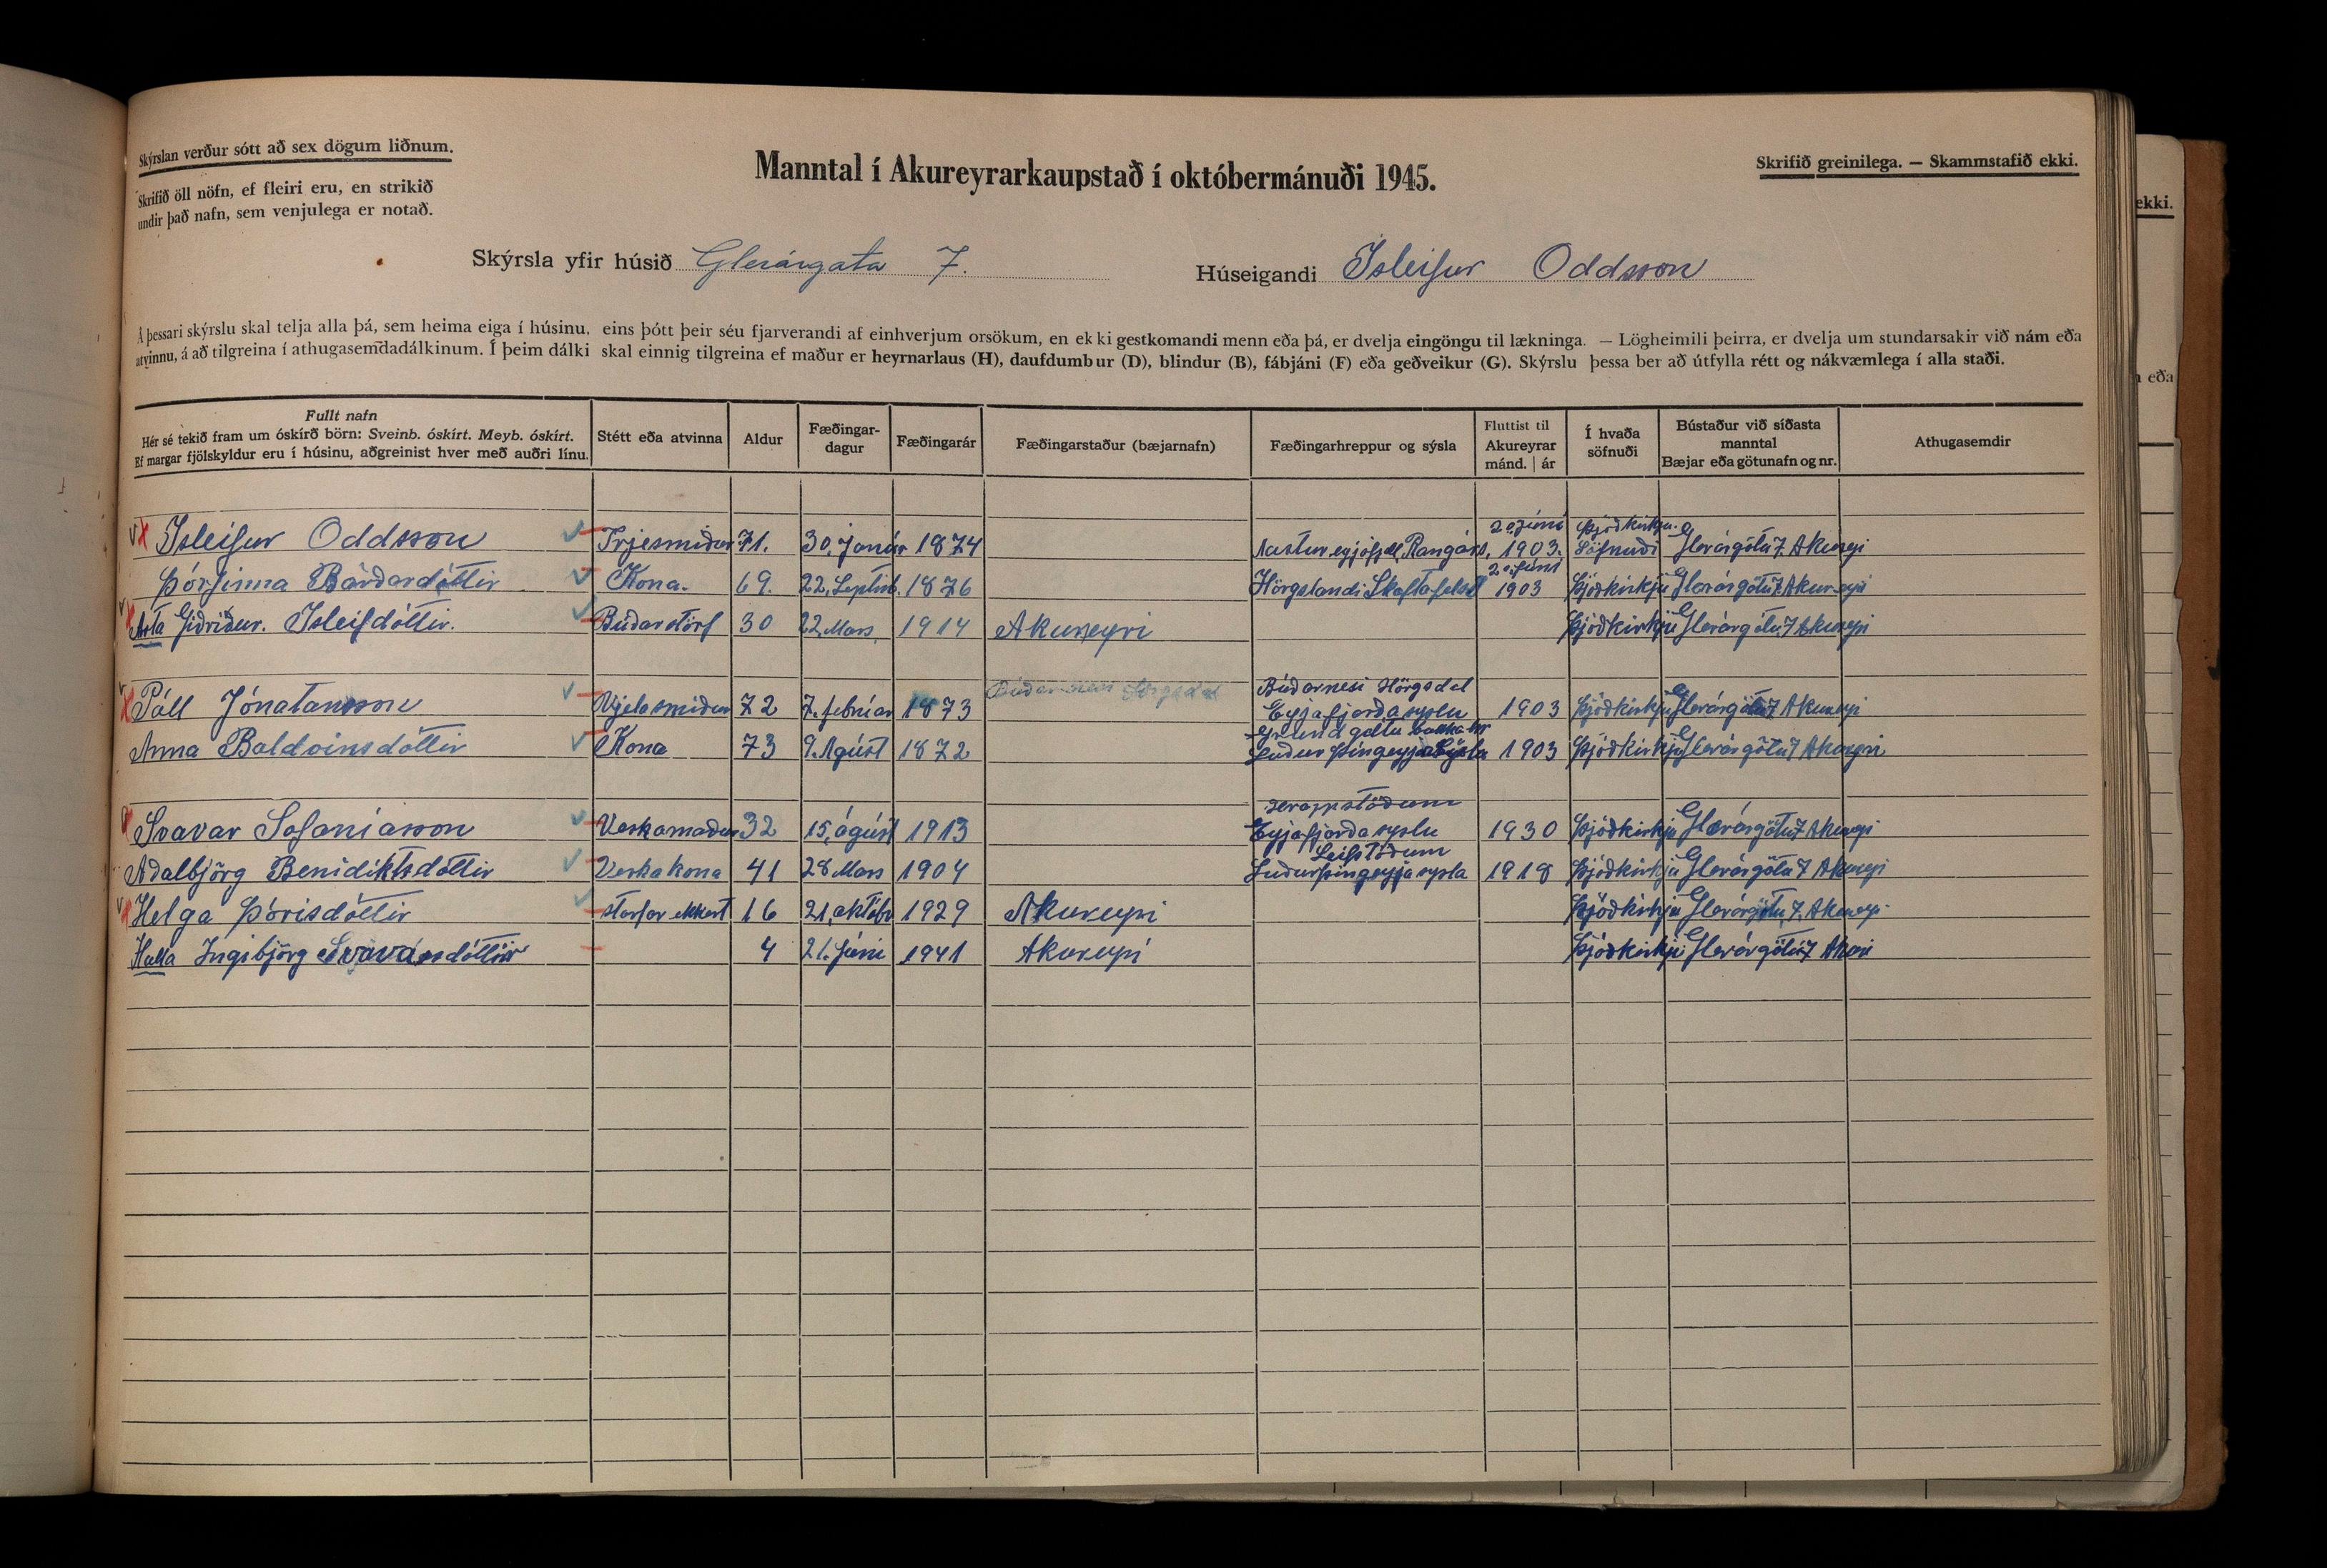 Skýrslan verður sótt að sex dögum liðnum.
Skrifið öll nöfn, ef fleiri eru, en strikið
undir það nafn, sem venjulega er notað.
Manntal í Akureyrarkaupstað í októbermánuði 1945.
Skrifið greinilega. — Skammstafið ekki.
Skýrsla yfir húsið Glerárgata 7.
Húseigandi Ísleifur Oddsson
Á þessari skýrslu skal telja alla þá, sem heima eiga í húsinu, eins þótt þeir séu fjarverandi af einhverjum orsökum, en ekki gestkomandi menn eða þá, er dvelja eingöngu til lækninga. — Lögheimili þeirra, er dvelja um stundarsakir við nám eða
atvinnu, á að tilgreina í athugasemdadálkinum. Í þeim dálki skal einnig tilgreina ef maður er heyrnarlaus (H), daufdumbur (D), blindur (B), fábjáni (F) eða geðveikur (G). Skýrslu þessa ber að útfylla rétt og nákvæmlega í alla staði.
Fullt nafn
Hér sé tekið fram um óskírð börn: Sveinb. óskírt. Meyb. óskírt.
Ef margar fjölskyldur eru í húsinu, aðgreinist hver með auðri línu.
Stétt eða atvinna
Aldur
Fæðingar-
dagur
Fæðingarár
Fæðingarstaður (bæjarnafn)
Fæðingarhreppur og sýsla
Fluttist til
Akureyrar
mánd. | ár
Í hvaða
söfnuði
Bústaður við síðasta
manntal
Bæjar eða götunafn og nr.
Athugasemdir
Ísleifur Oddsson Trjesmiður 71. 30. janúar 1874 Austur eyjafjöll, Rangárs. 20 júní 1903. Þjóðkirkju Söfnuði Glerárgötu 7. Akureyri
Þórfinna Bárðardóttir Kona. 69. 22. Septnb. 1876 Hörgslandi Skaftafelss 20 júní 1903 Þjóðkirkju Glerárgötu 7 Akureyri
Ásta Guðríður. Ísleifdóttir. Búðarstörf 30 22 Mars. 1914 Akureyri Þjóðkirkju Glerárgötu 7 Akureyri
Páll Jónatansson Vjelasmiður 72 7. febrúar 1873 Búðarnesi Hörgsdal
Eyjafjarðasyslu 1903 Þjóðkirkju Glerárgötu 7 Akureyri
Anna Baldvinsdóttir Kona 73 9. Agúst 1872
Suður Þingeyja Sýsla 1903 Þjóðkirkju Glerárgötu 7 Akureyri
Svavar Sofaníasson Verkamaður 32 15. ágúst 1913
Eyjafjarðasyslu 1930 Þjóðkirkju Glerárgötu 7 Akureyri
Aðalbjörg Benidiktsdóttir Verkakona 41 28 Mars 1904 Leifstöðum
Suðurþingeyjasysla 1918 Þjóðkirkju Glerárgötu 7 Akureyri
Helga Þórisdóttir starfar ekkert 16 21. október 1929 Akureyri Þjóðkirkju Glerárgötu 7. Akureyri
Halla Ingibjörg Svavarsdóttir 4 21. Júni 1941 Akureyri Þjóðkirkju Glerárgötu 7
ekki.
eða